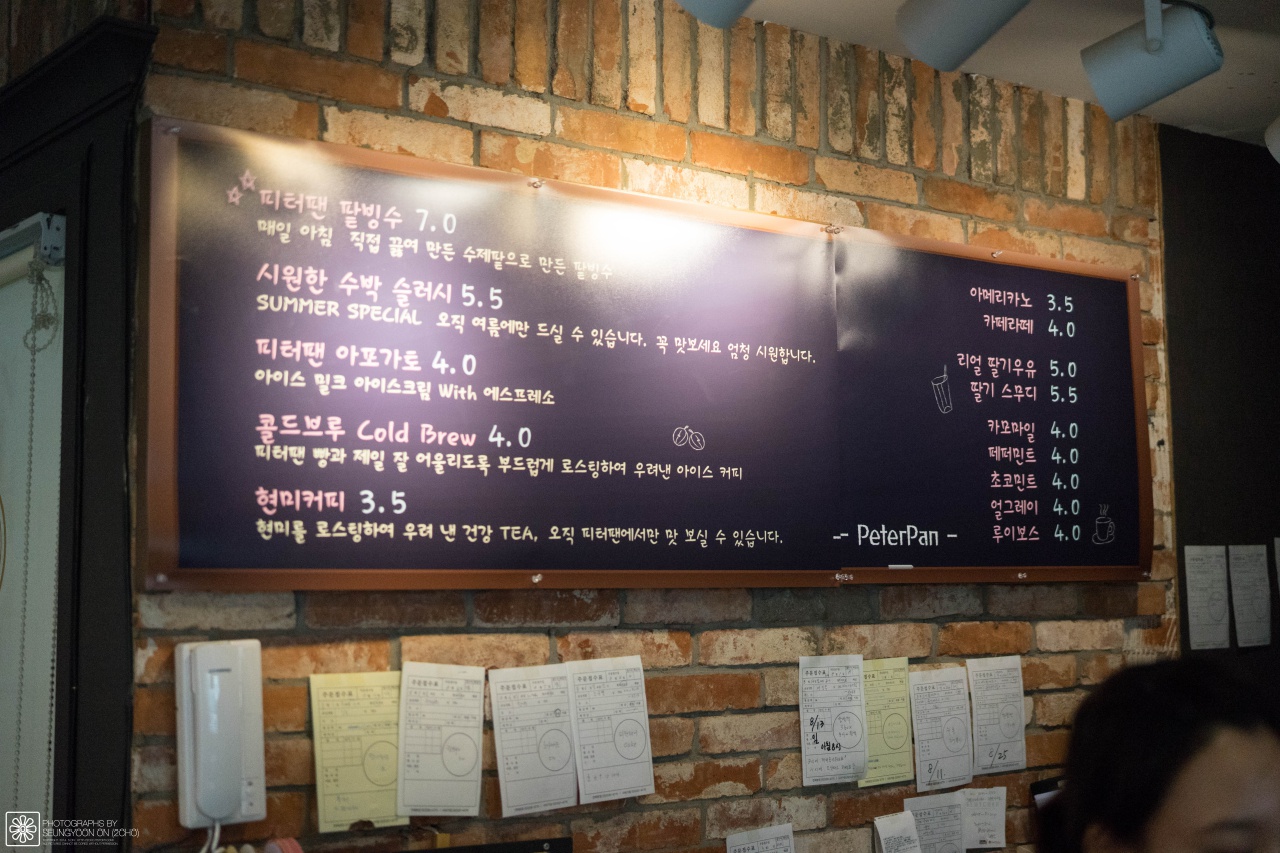 피터팬 팥빙수 7.0
매일 아침 직접 끓여 만든 수제팥으로 만든 팥빙수
시원한 수박 슬러시 5.5
SUMMER SPECIAL 오직 여름에만 드실 수 있습니다. 꼭 맛보세요 엄청 시원합니다.
피터팬 아포가토 4.0
아이스 밀크 아이스크림 With 에스프레소
콜드브루 Cold Brew 4.0
피터팬 빵과 제일 잘 어울리도록 부드럽게 로스팅하여 우려낸 아이스 커피
현미커피 3.5
현미를 로스팅하여 우려 낸 건강 TEA, 오직 피터팬에서만 맛 보실 수 있습니다.
아메리카노 3.5
카페라떼 4.0
리얼 딸기우유 5.0
딸기 스무디 5.5
카모마일 4.0
페퍼민트 4.0
초코민트 4.0
얼그레이 4.0
루이보스 4.0
-- PeterPan --
8/13
8/11
8/25
PHOTOGRAPHS BY
SEUNGYOON ON (2CHO)